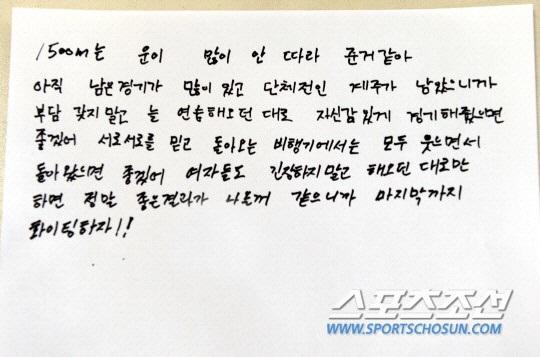 1500m는 운이 많이 안 따라 준거같아
아직 남은경기가 많이 있고 단체전인 계주가 남았으니까
부담 갖지말고 늘 연습해오던 대로 자신감있게 경기해줬으면
좋겠어 서로서로를 믿고 돌아오는 비행기에서는 모두 웃으면서
돌아왔으면 좋겠어 여자들도 긴장하지말고 해오던 대로만
하면 정말 좋은결과가 나올꺼 같으니까 마지막까지
화이팅하자!!
스포츠조선
WWW.SPORTSCHOSUN.COM